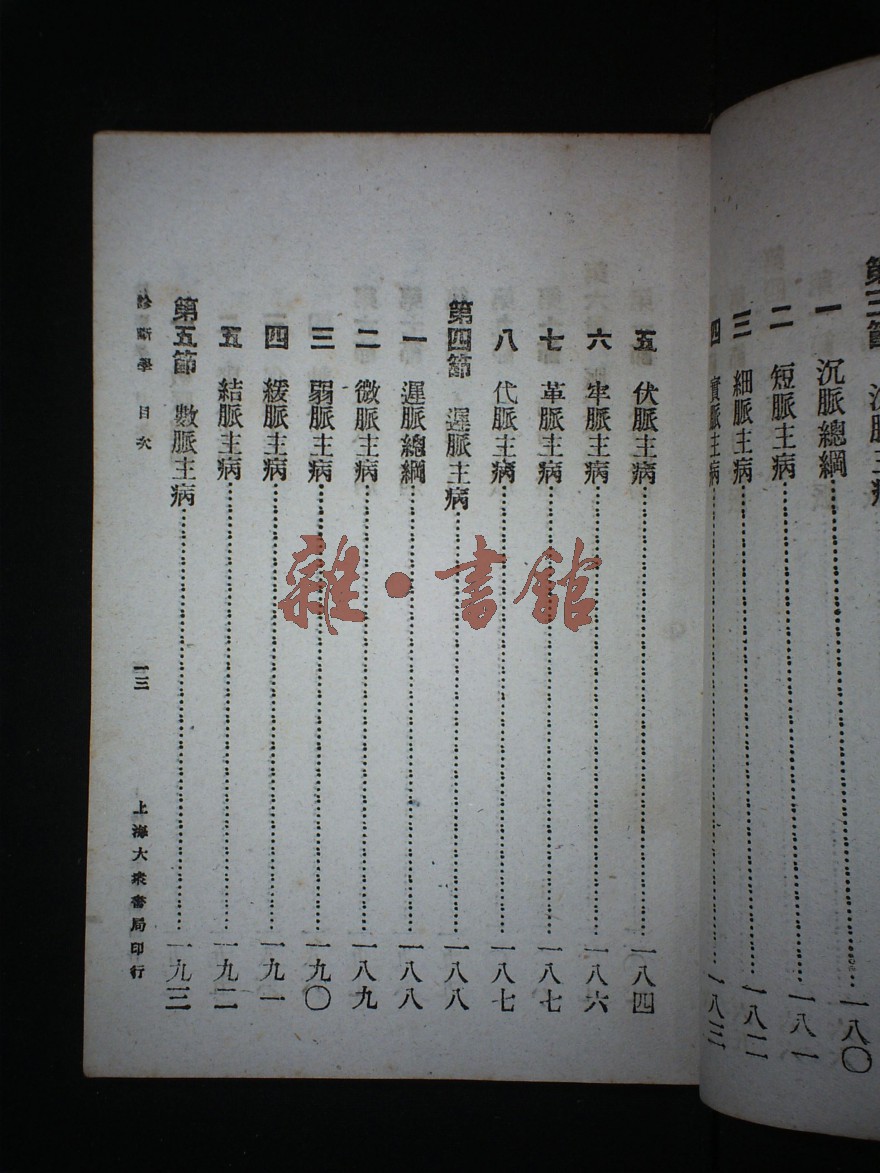 第三節 沉脈主病
一 沉脈總綱……一八〇
二 短脈主病……一八一
三 細脈主病……一八二
四 實脈主病……一八三
五 伏脈主病……一八四
六 牢脈主病……一八六
七 革脈主病……一八七
八 代脈主病……一八七
第四節 遲脈主病……一八八
一 遲脈總綱……一八八
二 微脈主病……一八九
三 弱脈主病……一九〇
四 緩脈主病……一九一
五 結脈主病……一九二
第五節 數脈主病……一九三
診斷學 目次 一三 上海大衆書局印行
雜·書館